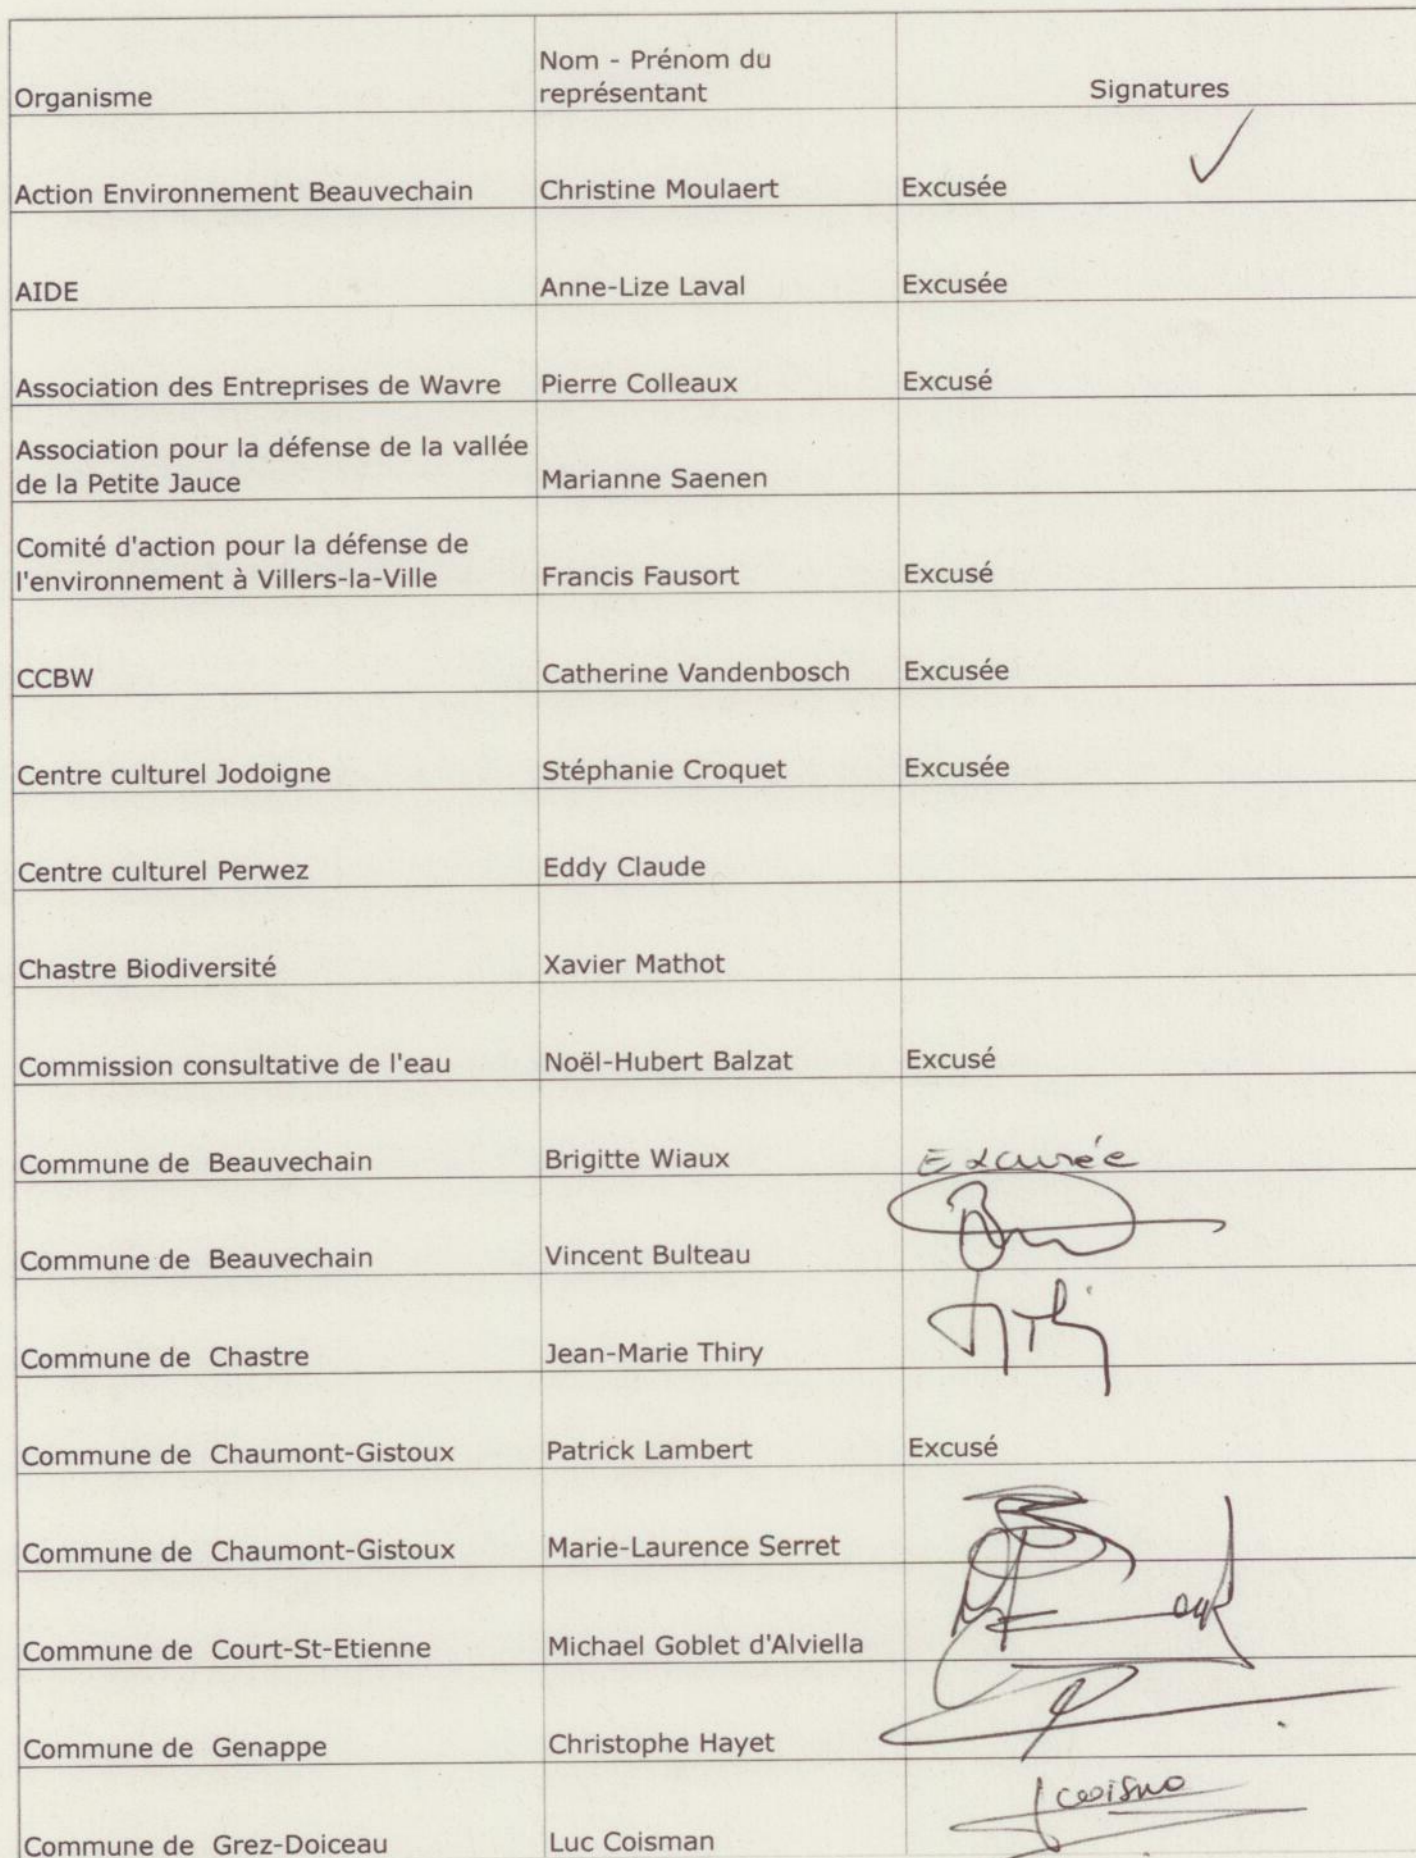 Nom - Prénom du
Organisme représentant Signatures
Action Environnement Beauvechain Christine Moulaert Excusée
AIDE Anne-Lize Laval Excusée
Association des Entreprises de Wavre Pierre Colleaux Excusé
Association pour la défense de la vallée
de la Petite Jauce Marianne Saenen
Comité d'action pour la défense de
l'environnement à Villers-la-Ville Francis Fausort Excusé
CCBW Catherine Vandenbosch Excusée
Centre culturel Jodoigne Stéphanie Croquet Excusée
Centre culturel Perwez Eddy Claude
Chastre Biodiversité Xavier Mathot
Commission consultative de l'eau Noël-Hubert Balzat Excusé
Commune de Beauvechain Brigitte Wiaux Excusée
Commune de Beauvechain Vincent Bulteau
Commune de Chastre Jean-Marie Thiry
Commune de Chaumont-Gistoux Patrick Lambert Excusé
Commune de Chaumont-Gistoux Marie-Laurence Serret
Commune de Court-St-Etienne Michael Goblet d'Alviella
Commune de Genappe Christophe Hayet
Commune de Grez-Doiceau Luc Coisman